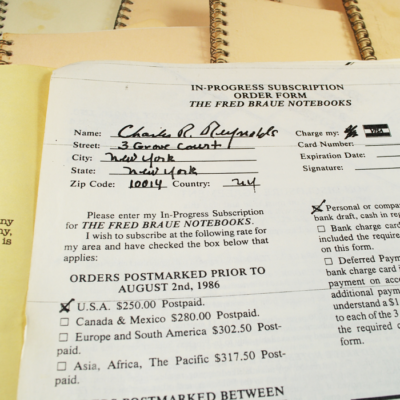 IN-PROGRESS SUBSCRIPTION
ORDER FORM
THE FRED BRAUE NOTEBOOKS
Name: Charles R. Reynolds
Street: 3 Grove Court
City: New York
State: New York
Zip Code: 10014 Country: NY
Charge my: VISA
Card Number:
Expiration Date:
Signature:
Please enter my In-Progress Subscription
for THE FRED BRAUE NOTEBOOKS.
I wish to subscribe at the following rate for
my area and have checked the box below that
applies:
ORDERS POSTMARKED PRIOR TO
AUGUST 2nd, 1986
U.S.A. $250.00 Postpaid.
Canada & Mexico $280.00 Postpaid.
Europe and South America $302.50 Post-
paid.
Asia, Africa, The Pacific $317.50 Post-
paid.
ORDERS POSTMARKED BETWEEN
Personal or compa
bank draft, cash in reg
Bank charge card
included the require
on this form.
Deferred Paym
bank charge card i
payment on acco
additional payme
understand a $1
to each of the 3
the required c
form.
ny
is